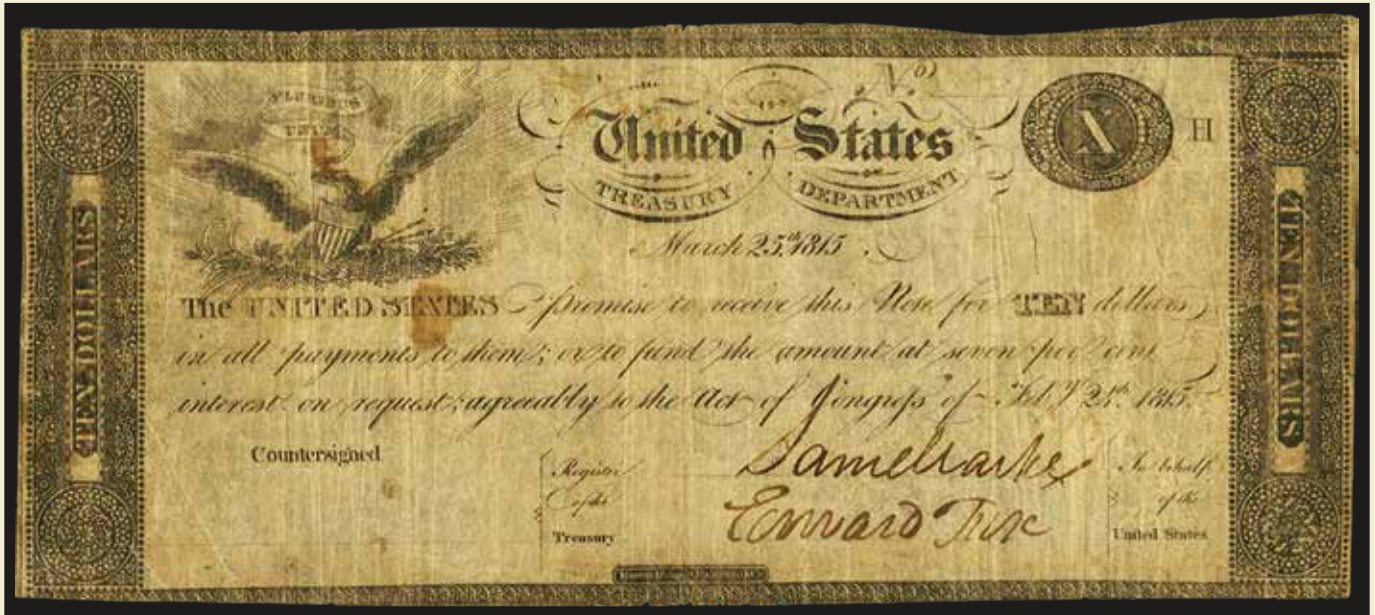 PLURIBUS
UNUM
No.
United States
TREASURY DEPARTMENT
X H
March 25th 1815
TEN DOLLARS
TEN DOLLARS
The UNITED STATES promise to receive this Note for TEN dollars
in all payments to them; or to fund the amount at seven per cent
interest on request; agreeably to the Act of Congress of Feby 24th 1815.
Countersigned
Register
of the
Treasury
Edward Fox
In behalf
of the
United States